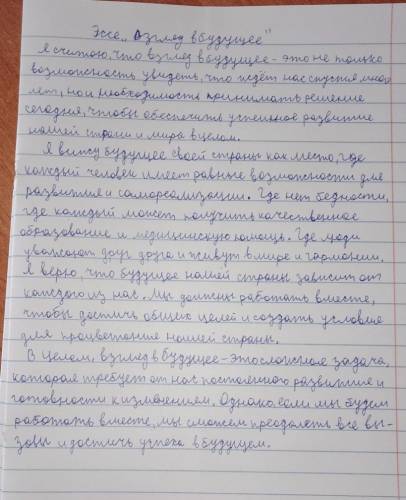 Эссе „Взгляд в будущее"
Я считаю, что взгляд в будущее - это не только
возможность увидеть, что ждёт нас спустя много
лет, но и необходимость принимать решение
сегодня, чтобы обеспечить успешное развитие
нашей страны и мира в целом.
Я вижу будущее своей страны как место, где
каждый человек имеет равные возможности для
развития и самореализации. Где нет бедности,
где каждый может получить качественное
образование и медицинскую помощь. Где люди
уважают друг друга и живут в мире и гармонии.
Я верю, что будущее нашей страны зависит от
каждого из нас. Мы должны работать вместе,
чтобы достичь общих целей и создать условия
для процветания нашей страны.
В целом, взгляд в будущее - это сложная задача,
которая требует от нас постоянного развития и
готовности к изменением. Однако, если мы будем
работать вместе, мы сможем преодолеть все вы-
зовы и достичь успеха в будущем.